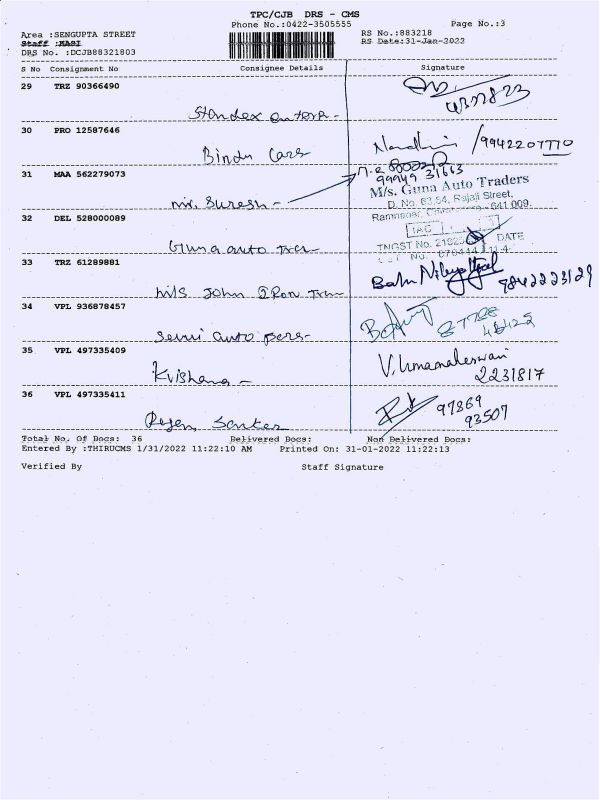 TPC/CJB DRS - CMS
Phone No.:0422-3505555 Page No.:3
Area :SENGUPTA STREET RS No.:883218
Staff :MASI RS Date:31-Jan-2022
DRS No. :DCJB88321803
S No Consignment No Consignee Details Signature
29 TRZ 90366490
Standex
30 PRO 12587646
Bindu Cars /9942207770
31 MAA 562279073
99949 31663
Mr. Suresh
M/s. Guna Auto Traders
D. No. 63,64, Rajaji Street,
Ramnagar, - 641 009.
32 DEL 528000089
Guna auto
TNGST No. DATE
33 TRZ 61289881
M/s John 9842223129
34 VPL 936878457
auto
35 VPL 497335409
Krishana V. Umamaheswari
2231817
36 VPL 497335411
97869
93507
Total No. Of Docs: 36 Delivered Docs: Non Delivered Docs:
Entered By :THIRUCMS 1/31/2022 11:22:10 AM Printed On: 31-01-2022 11:22:13
Verified By Staff Signature